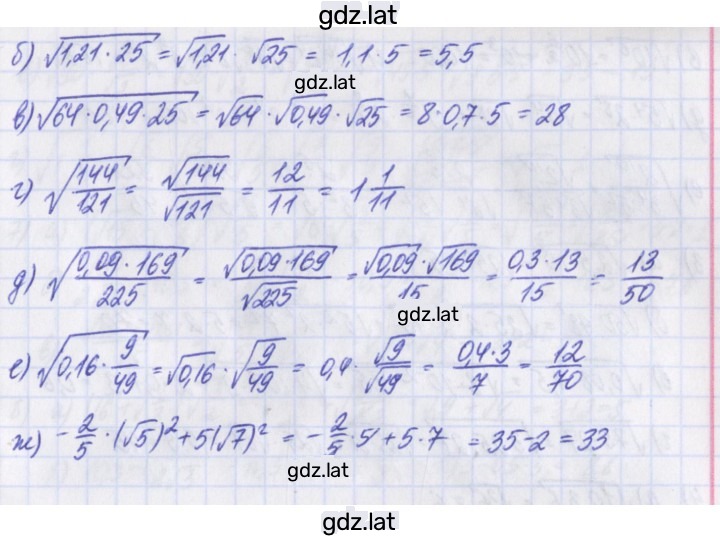 gdz.lat
б) √(1,21 · 25) = √1,21 · √25 = 1,1 · 5 = 5,5
gdz.lat
в) √(64 · 0,49 · 25) = √64 · √0,49 · √25 = 8 · 0,7 · 5 = 28
г) √(144/121) = √144/√121 = 12/11 = 1 1/11
д) √((0,09 · 169)/225) = √(0,09 · 169)/√225 = (√0,09 · √169)/15 = (0,3 · 13)/15 = 13/50
gdz.lat
е) √(0,16 · 9/49) = √0,16 · √(9/49) = 0,4 · √9/√49 = (0,4 · 3)/7 = 12/70
ж) -2/5 · (√5)² + 5(√7)² = -2/5 · 5 + 5 · 7 = 35 - 2 = 33
gdz.lat
gdz.lat